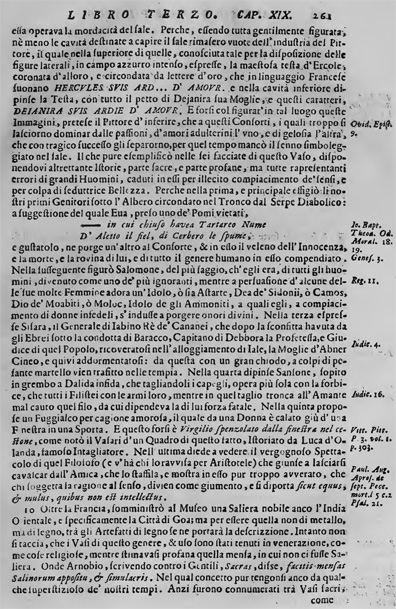 LIBRO TERZO. CAP. XIX. 261
essa operava la mordacità del sale. Perche, essendo tutta gentilmente figurata,
nè meno le cavità destinate a capire il sale rimasero vuote dell'industria del Pit-
tore, il quale nella superior di quelle, conosciuta tale per la disposizione delle
figure laterali, in campo azzurro intenso, espresse, la maestosa testa d'Ercole,
coronata d'alloro, e circondata da lettere d'oro, che in linguaggio Francese
suonano HERCVLES SVIS ARD... D' AMOVR. e nella cavità inferiore di-
pinse la Testa, con tutto il petto di Dejanira sua Moglie, e questi caratteri,
DEIANIRA SVIS ARDIE D' AMOVR. E forsi col figurar'in tal luogo queste
Immagini, pretese il Pittore d'inferire, che a questi Consorti, i quali troppo si
lasciorno dominar dalle passioni, d'amori adulterini l'vno, e di gelosia l'altra,
che con tragico successo gli separorno, per quel tempo mancò il senno simboleg-
giato nel sale. Il che pure esemplificò nelle sei facciate di questo Vaso, dispo-
nendovi altrettante Istorie, parte sacre, e parte profane, ma tutte rapresentanti
errori di grandi Huomini, caduti in essi per illecito compiacimento de'sensi, e
per colpa di seduttrice Bellezza. Perche nella prima, e principale effigiò li no-
stri primi Genitori sotto l' Albero circondato nel Tronco dal Serpe Diabolico:
a suggestione del quale Eua, preso uno de' Pomi vietati,
— in cui chiuso havea Tartareo Nume
D' Aletto il fiel, di Cerbero le spume,
e gustatolo, ne purge un' altro al Consorte, & in esso il veleno dell'Innocenza,
e la morte, e la rovina di lui, e di tutto il genere humano in esso compendiato.
Nella susseguente figurò Salomone, del più saggio, ch'egli era, di tutti gli huo-
mini, divenuto come uno de' più ignoranti, mentre a persuasione d' alcune del-
le sue molte Femmine adora un' Idolo, ò sia Astarte, Dea de' Sidonii, ò Camos,
Dio de' Moabiti, ò Moloc, Idolo de gli Ammoniti, a quali egli, a compiaci-
mento di donne infedeli, s' indusse a porgere onori divini. Nella terza espres-
se Sisara, il Generale di Iabino Rè de' Cananei, che dopo la sconfitta havuta da
gli Ebrei sotto la condotta di Baracco, Capitano di Debbora la Profetessa, e Giu-
dice di quel Popolo, ricoveratosi nell'alloggiamento di Iale, la Moglie d'Abner
Cineo, e quivi addormentatosi: da questa con un gran chiodo, a colpi di pe-
sante martello vien trafitto nelle tempia. Nella quarta dipinse Sansone, sopito
in grembo a Dalida infida, che tagliandoli i capegli, opera più sola con la forbi-
ce, che tutti i Filistei con le armi loro, mentre in quel taglio tronca all'Amante
mal cauto quel filo, da cui dipendeva la di lui forza fatale. Nella quinta propo-
se un Fuggiasco per cagione amorosa, il quale da una Donna è calato giù d' una
Finestra in una Sporta. E questo forsi è Virgilio spenzolato dalla finestra nel ce-
stone, come notò il Vasari d'un Quadro di questo fatto, Istoriato da Luca d'O-
landa, famoso Intagliatore. Nell' ultima diede a vedere il vergognoso Spetta-
colo di quel Filosofo (e v'hà chi lo ravvisa per Aristotele) che giunse a lasciarsi
cavalcar dall'Amica, che lo staffila, e mostra in esso pur troppo avverato, che
chi soggetta la ragione al senso, diven come giumento, e si diporta sicut equus,
& mulus, quibus non est intellectus.
10 Oltre la Francia, somministrò al Museo una Saliera nobile anco l'India
Orientale, e specificamente la Città di Goa; ma per essere quella non di metallo,
ma di legno, trà gli Artefatti di legno se ne portarà la descrizione. Intanto non
si taccia, che i Vasi di questo genere, & uso sono stati tenuti in venerazione, co-
me cose religiose, mentre stimavasi profana quella mensa, in cui non ci fusse Sa-
liera. Onde Arnobio, scrivendo contro i Gentili, Sacras, disse, facitis mensas
Salinorum appositu, & simulacris. Nel qual concetto pur tengonsi anco da qual-
che superstizioso de' nostri tempi. Anzi furono connumerati trà Vasi sacri,
come
Ovid. Epist.
9.
Io. Bapt.
Theod. Od.
Moral. 18.
19.
Genes. 3.
Reg. 11.
Iudic. 4.
Iudic. 16.
Vitt. Pitt.
P. 3. vol. 1.
p. 303.
Paul. Aug.
Apros. de
sept. Pecc.
mort. l 5 c. 2
Psal. 21.